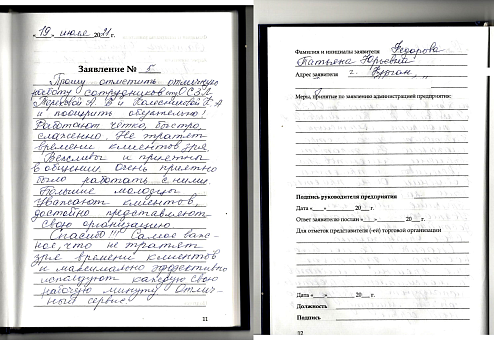 „19" июля 2021г.
Заявление № 5
Прошу отметить отличную
работу сотрудников
и поощрить обязательно!
Работают чётко, быстро,
слаженно. Не тратят
времени клиентов зря
Вежливы и приятны
в общении. Очень приятно
было работать с ними.
Большие молодцы
Уважают клиентов,
достойно представляют
свою организацию.
Спасибо!!! Самое важ-
ное, что не тратят
зря времени клиентов
и максимально эффективно
используют каждую свою
рабочую минуту. Отлич-
ный сервис.
11
Фамилия и инициалы заявителя Федорова
Татьяна Юрьевна
Адрес заявителя г. Курган
Меры, принятие по заявлению администрацией предприятия:
Подпись руководителя предприятия
Дата «___»________20__ г.
Ответ заявителю послан «___»________20__ г.
Для отметок представителя (-ей) торговой организации
Дата «___»________20__ г.
Должность
Подпись
12